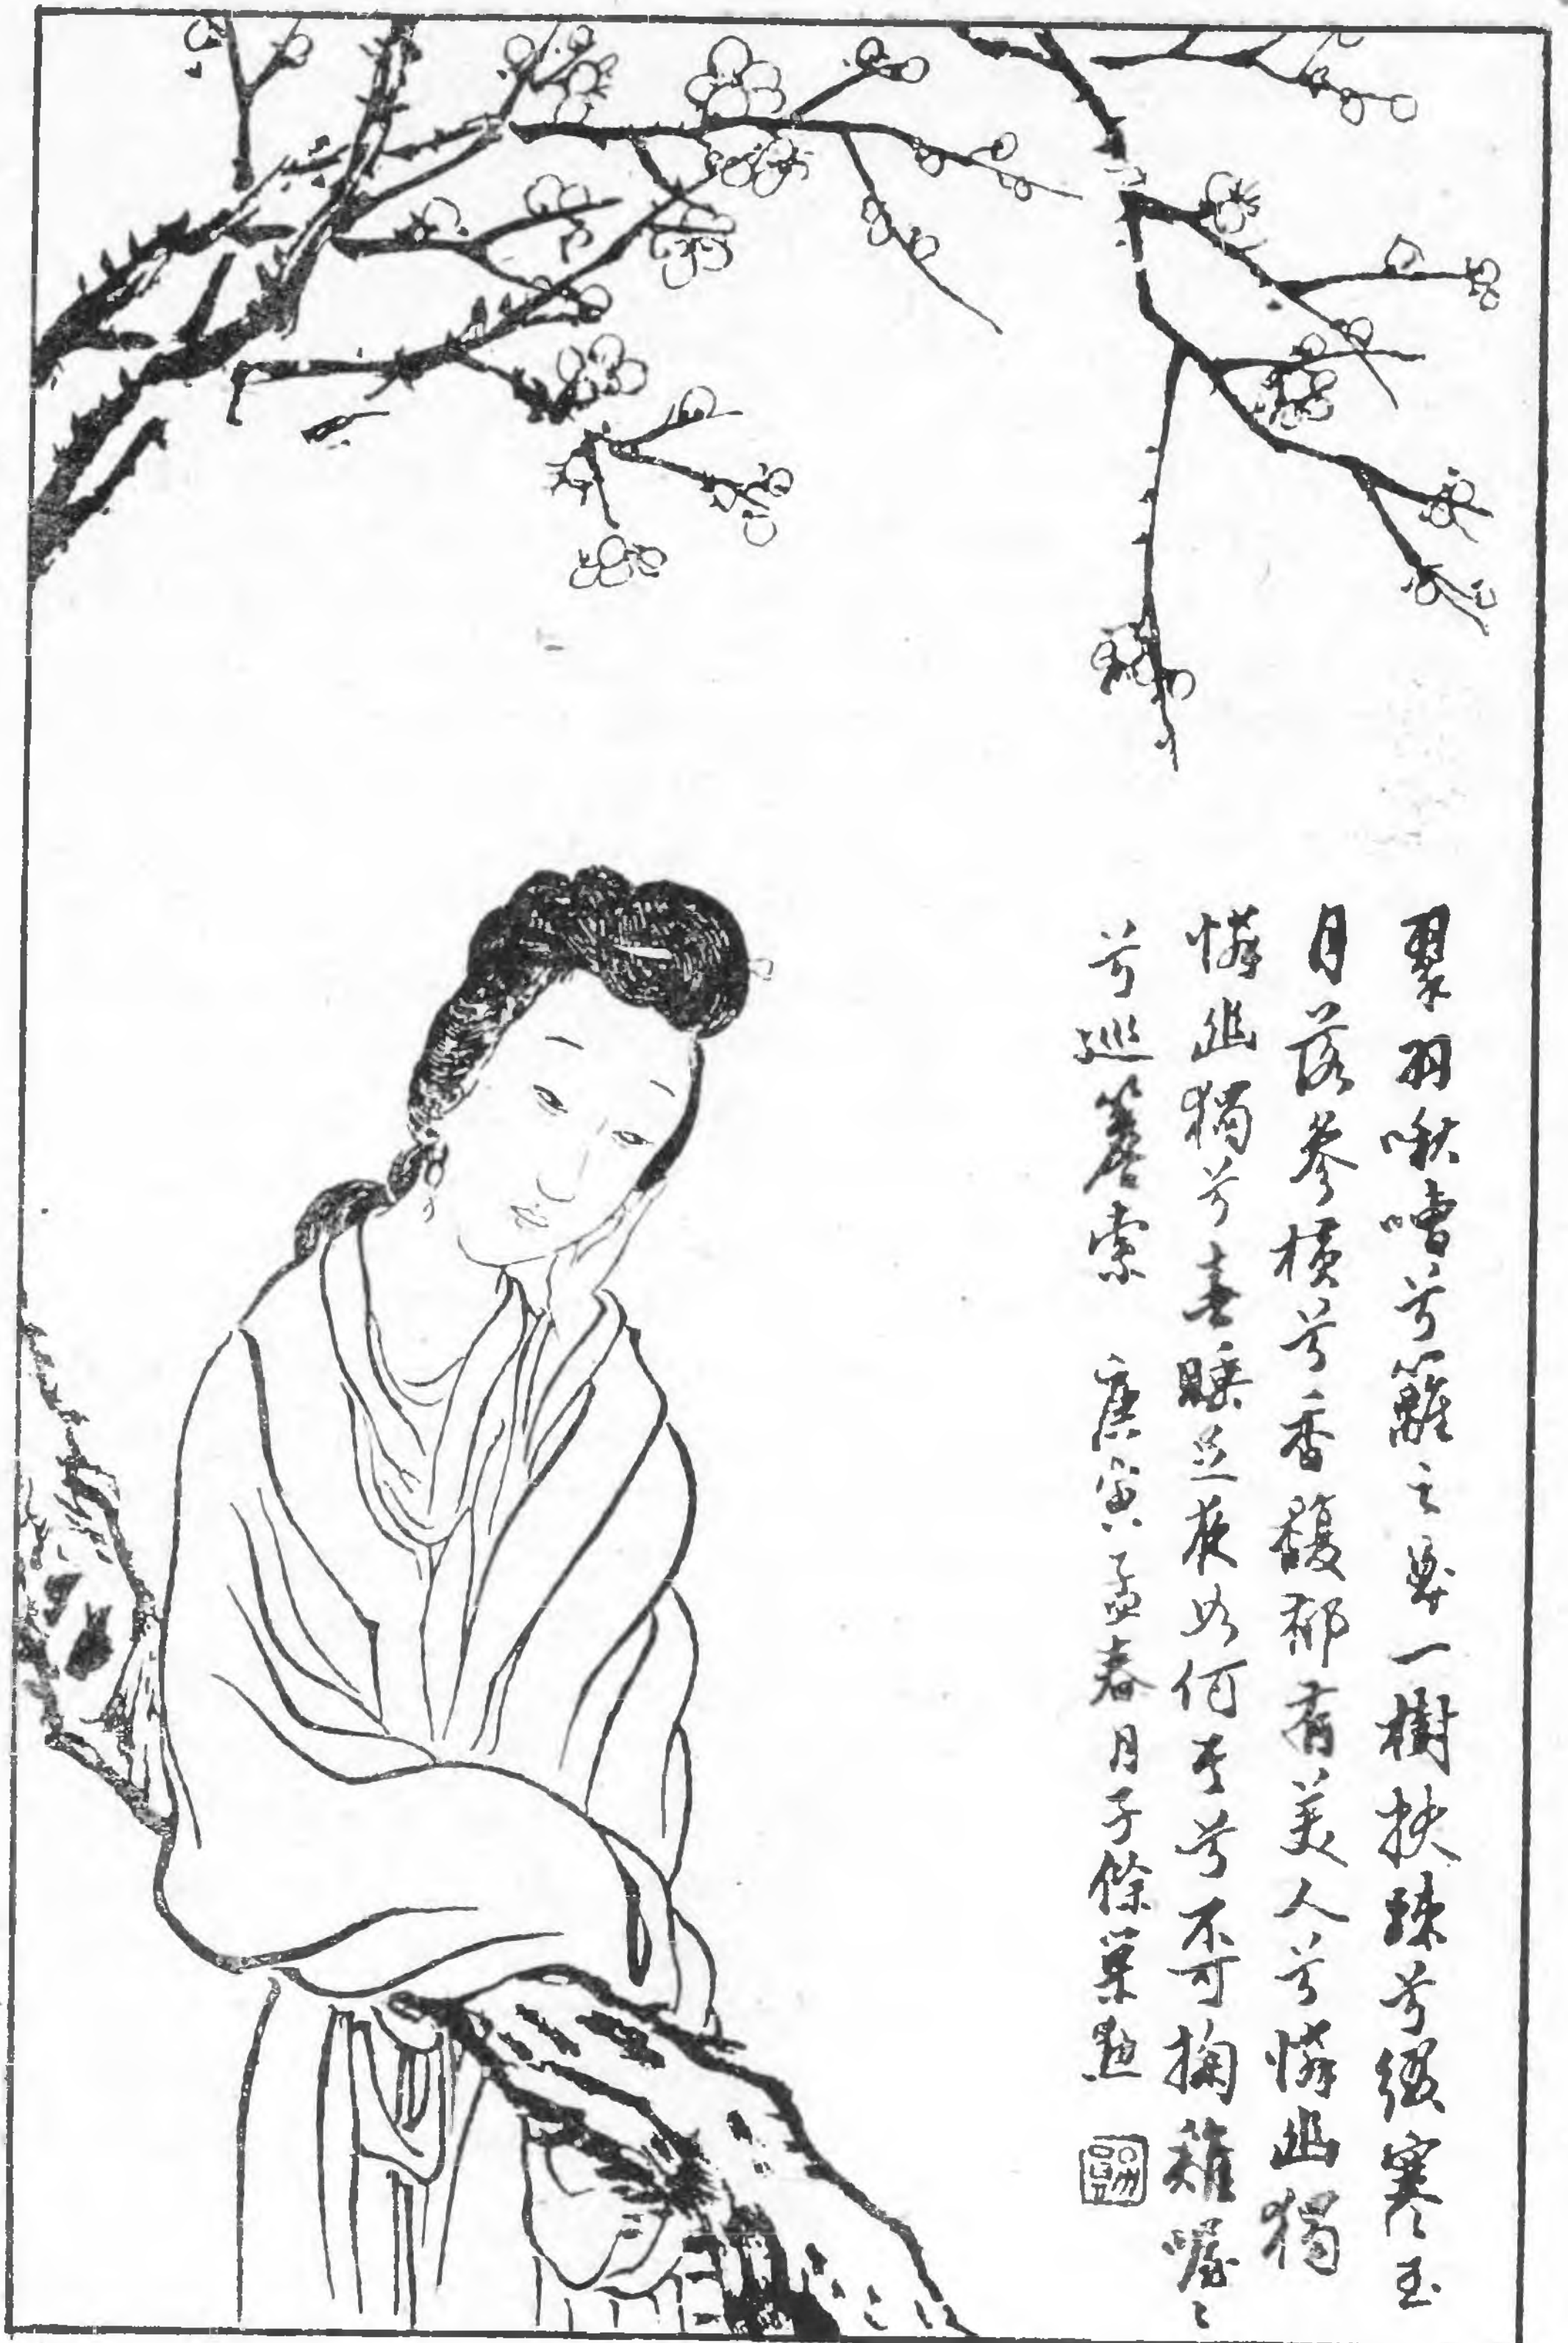 翠羽啾嘈兮籬之畔一樹扶疎兮綴寒玉
月落參橫兮香馥郁有美人兮憐幽獨
憐幽獨兮春睡足夜如何其兮不可掬雞喔〻
兮巡簷索　庚寅孟春月子餘